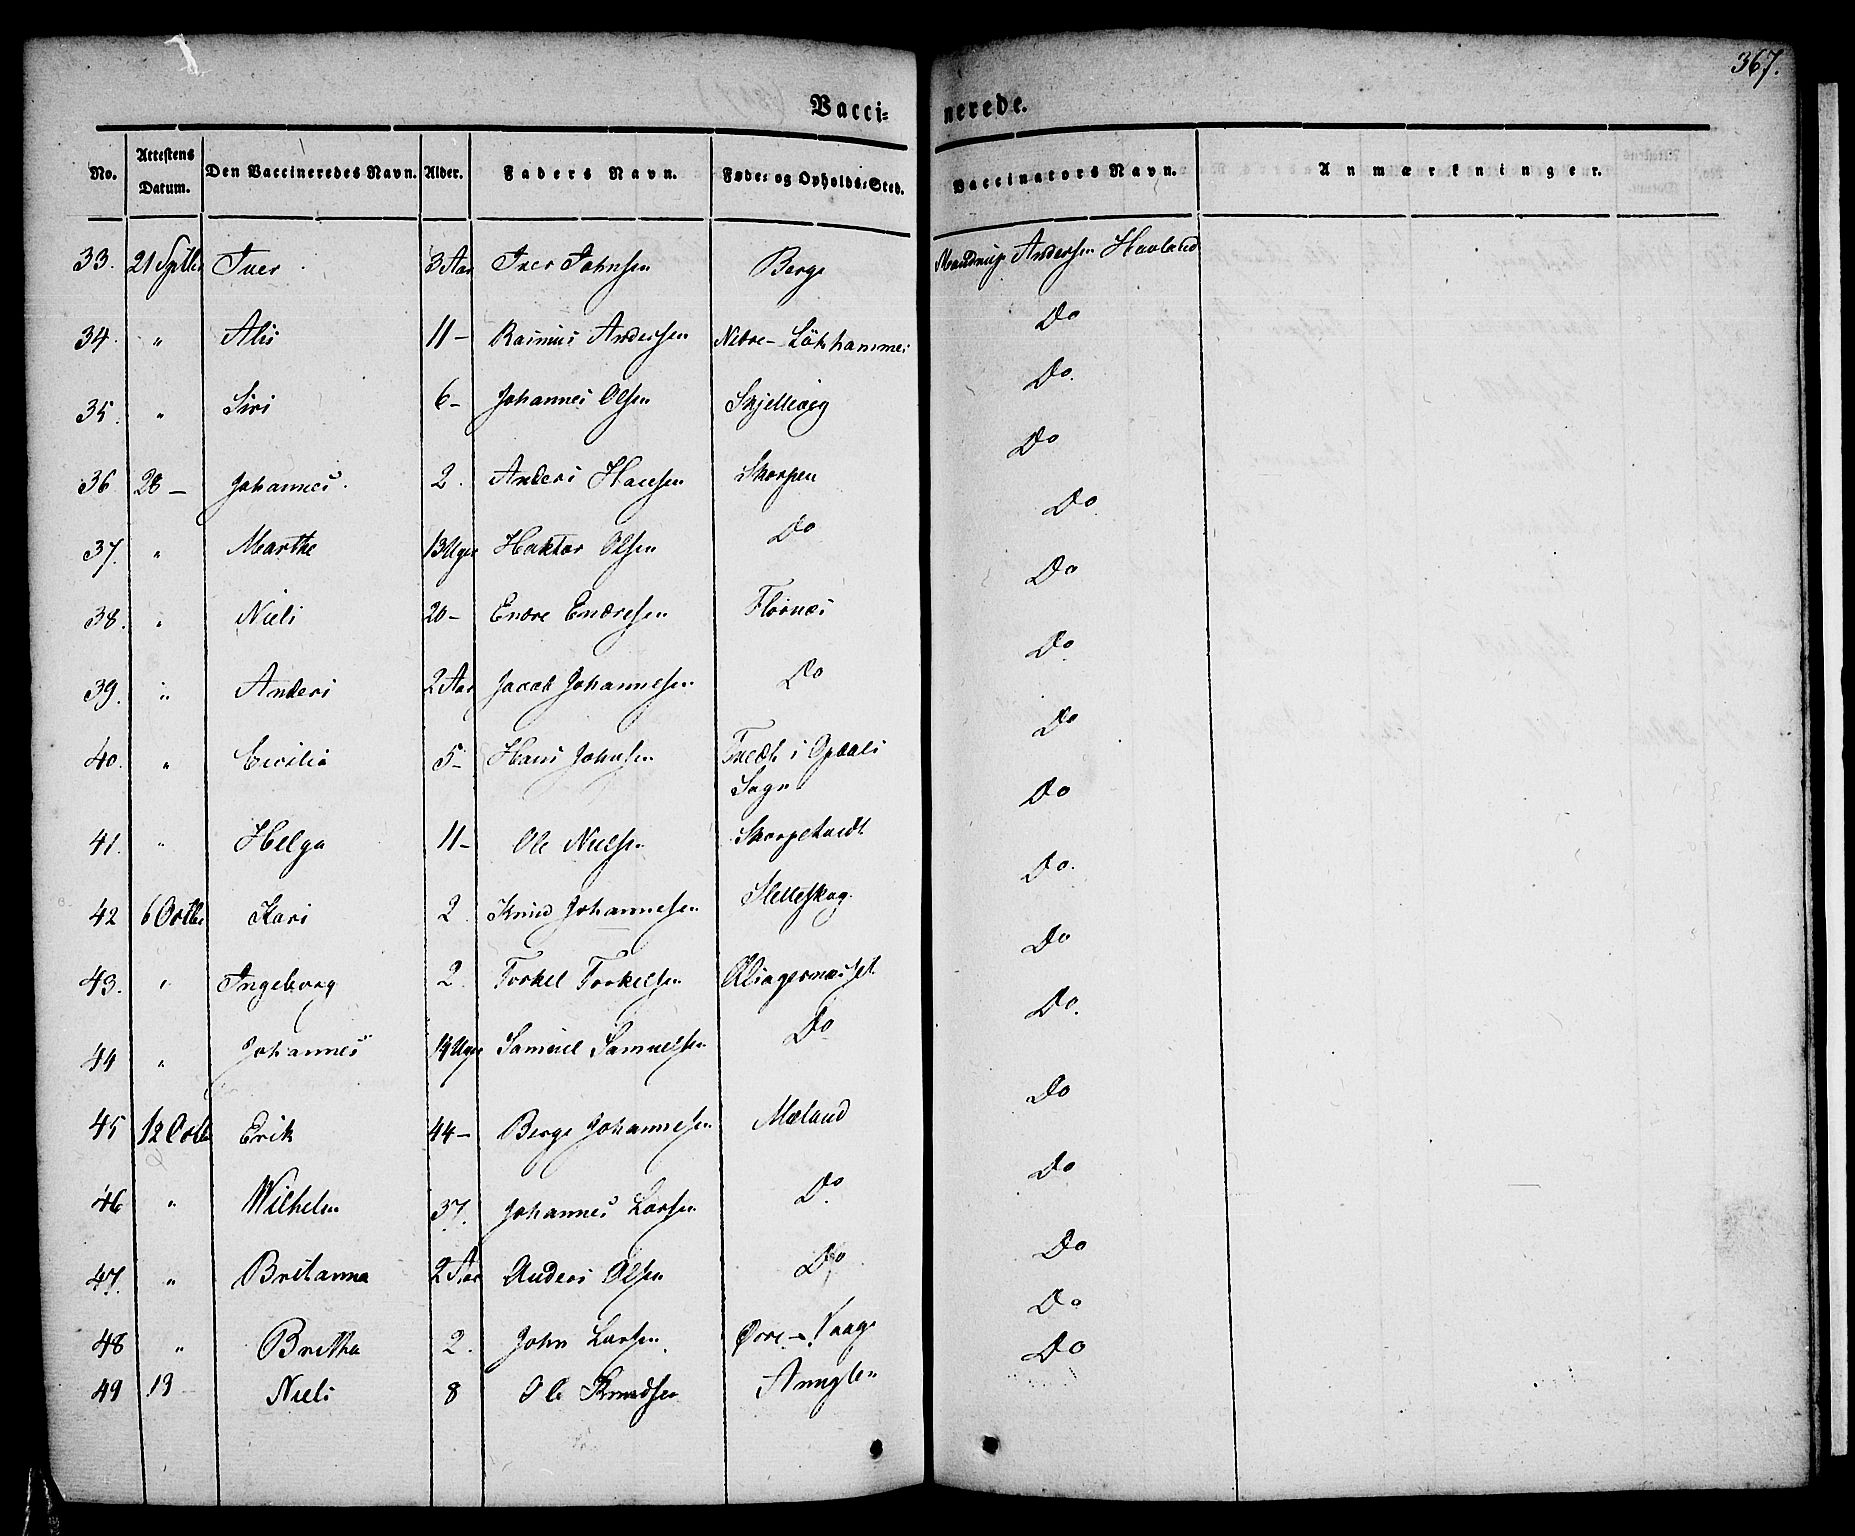 367.
Vaccinerede.
No. Attestens Datum. Den Vaccineredes Navn. Alder. Faders Navn. Føde- og Opholds-Sted. Vaccinators Navn. Anmærkninger.
33. 21 Septbr Iver 3 Aar Iver Johnsen Berge Mandrup Andersen Havland
34. " Alis 11 - Rasmus Andersen Nedre - Lökhammer Do
35. " Siri 6 - Johannes Olsen Skjellevig Do.
36 28 - Johannes. 2. Anders Hansen Skorpen Do
37. " Marthe 13 Uger Haktor Olsen Do Do.
38. " Niels 20 - Endre Endresen Flornes Do
39. " Anders 2 Aar Jacob Johannesen Do Do.
40. " Cecilia 5 - Hans Johnsen i Opdals Sogn Do
41. " Helga 11 - Ole Nielsen Do
42 6 Octbr Kari 2. Knud Johannesen Sletteskog. Do.
43. " Ingeborg 2. Torkel Torkelsen Do
44 " Johannes 14 Uger Samuel Samuelsen Do Do.
45 12 Octb Erik 44 - Berge Johannesen Mæland Do
46 " Wilhelm 37. Johannes Larsen Do Do
47. " Britanna 2 Aar Anders Olsen Do Do
48 " Britha 2. John Larsen Øvre - Vaage Do
49 19 - Niels 8 Ole Knudsen Do